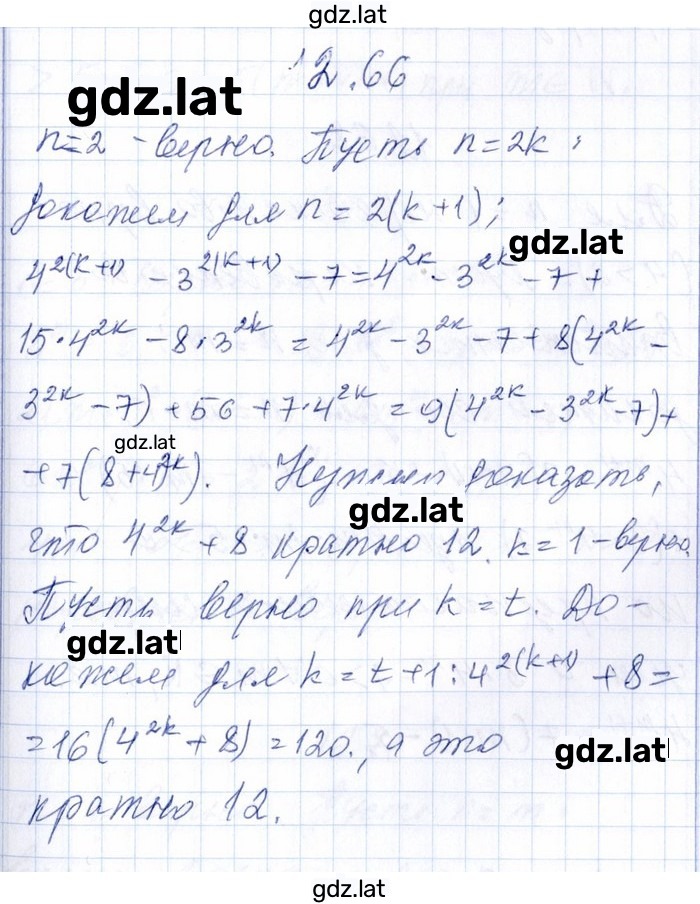 gdz.lat
2.66
gdz.lat
n=2 - верно. Пусть n = 2k ;
докажем для n = 2(k+1);
gdz.lat
4^{2(k+1)} - 3^{2(k+1)} - 7 = 4^{2k} - 3^{2k} - 7 +
15·4^{2k} - 8·3^{2k} = 4^{2k} - 3^{2k} - 7 + 8(4^{2k} -
3^{2k} - 7) + 56 + 7·4^{2k} = 9(4^{2k} - 3^{2k} - 7) +
gdz.lat
+ 7(8 + 4^{2k}). Нужно доказать,
gdz.lat
что 4^{2k} + 8 кратно 12. k = 1 - верно.
Пусть верно при k = t. До-
gdz.lat
кажем для k = t + 1 : 4^{2(k+1)} + 8 =
= 16(4^{2k} + 8) = 120., а это
gdz.lat
кратно 12.
gdz.lat